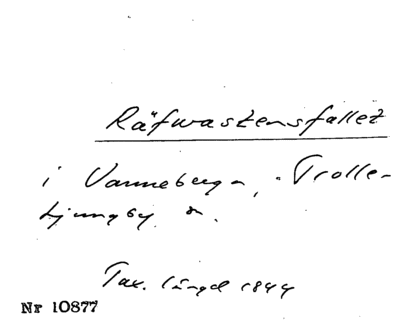 Räfwastensfallet
i Vanneberga, Trolle-
Ljungby sn.
Tax. längd 1844
Nr 10877